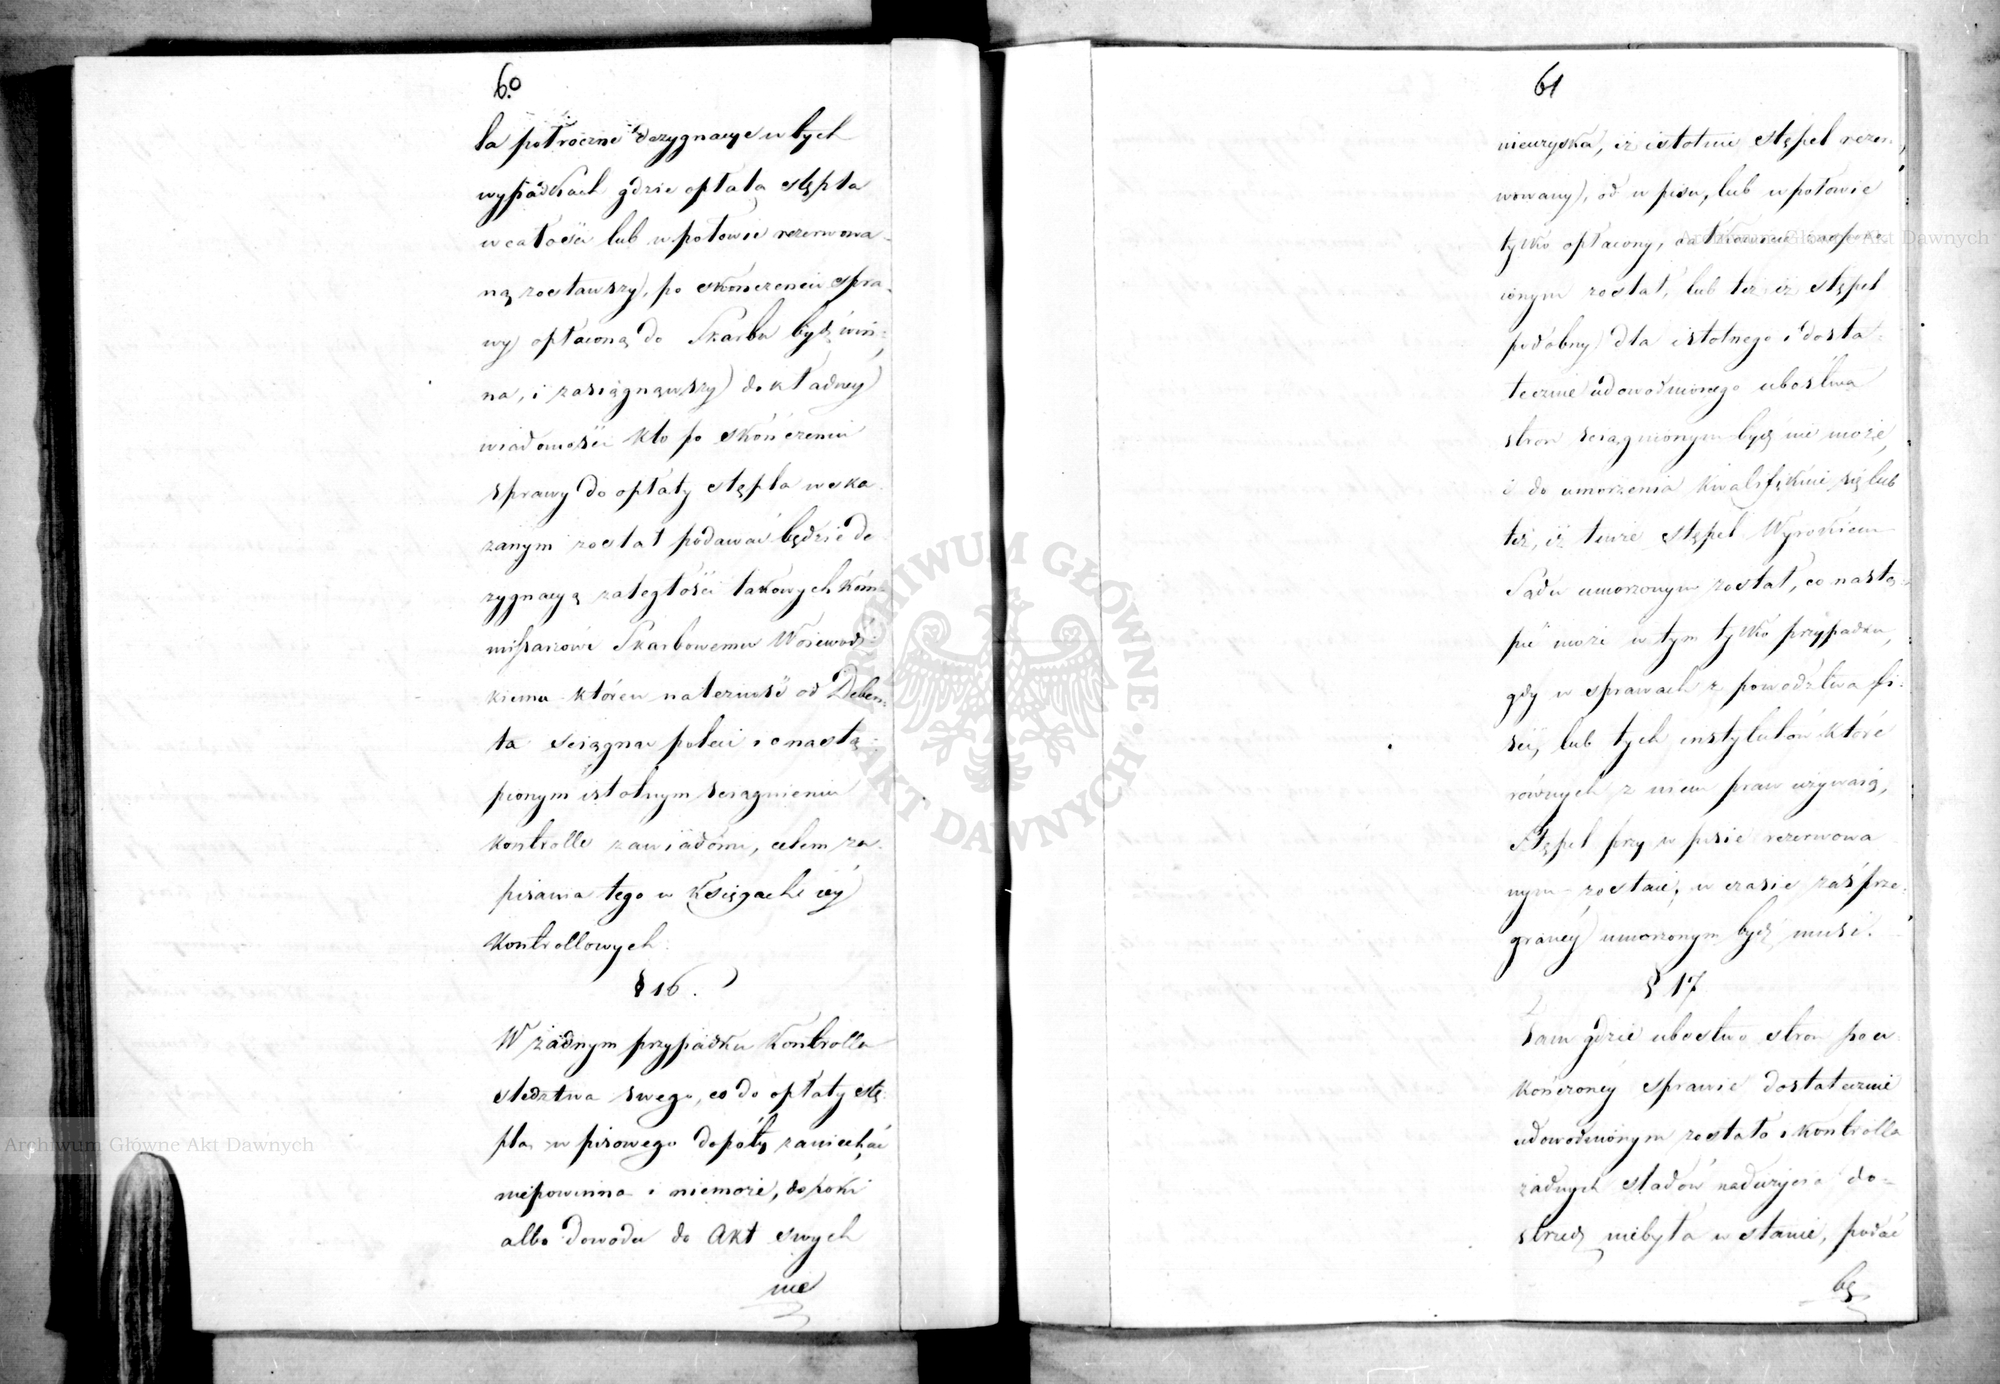 60
la pótroczne dezygnacye w tych
wypadkach gdzie opłata stępla
w całości lub w połowie rezerwowa-
ną zostawszy, po skończeniu spra-
wy opłaconą do Skarbu bydź win-
na, i zasiągnąwszy dokładney
wiadomości kto po skończeniu
sprawy do opłaty stępla wska-
zanym został podawać będzie de-
zygnacyą zaległości takowych Kom-
missarzowi Skarbowemu Wojewódz-
kiemu któren należność od Deben-
ta ściągnąć poleci i o nastą-
pionym istotnym ściągnieniu
kontrolle zawiadomi, celem za-
pisania tego w Księgach iey
Kontrollowych.
§ 16.
W żadnym przypadku Kontrolla
śledztwa swego, co do opłaty stę-
pla wpisowego dopóty zaniechać
niepowinna i niemoże, dopóki
albo dowodu do Akt swych
nie
61
nieuzyska, iż istotnie stępel rezer-
wowany, od wpisu, lub w połowie
tylko opłacony, całkowicie zaspoko-
ionym został, lub też iż stępel
podobny dla istotnego i dosta-
tecznie udowodnionego ubóstwa
stron ściągnionym bydź nie może,
i do umorzenia kwalifikuie się lub
też, iż tenże stępel Wyrokiem
Sądu umorzonym został, co nastą-
pić może w tym tylko przypadku,
gdy w sprawach z powództwa fi-
sci, lub tych instytutów które
równych z niem praw używaią,
Stępel przy wpisie rezerwowa
nym zostaie, w czasie zaś prze-
graney umorzonym bydź musi.
§ 17
Tam gdzie ubóstwo stron po u-
kończoney sprawie dostatecznie
udowodnionym zostało i Kontrolla
żadnych śladów nadużycia do-
strzedz niebyła w stanie, podać
bę
Archiwum Główne Akt Dawnych
Archiwum Główne Akt Dawnych
ARCHIWUM GŁÓWNE AKT DAWNYCH